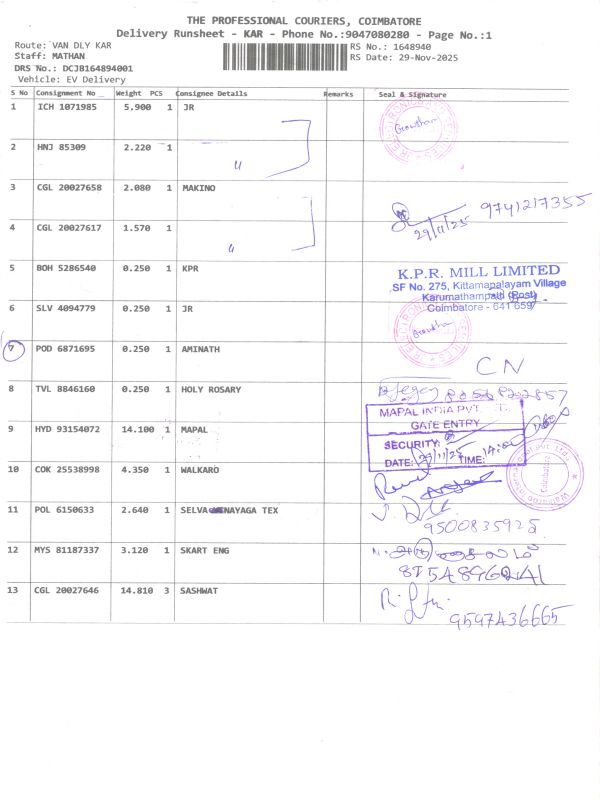 THE PROFESSIONAL COURIERS, COIMBATORE
Delivery Runsheet - KAR - Phone No.:9047080280 - Page No.:1
Route: VAN DLY KAR
RS No.: 1648940
Staff: MATHAN
RS Date: 29-Nov-2025
DRS No.: DCJB164894001
Vehicle: EV Delivery
S No Consignment No Weight PCS Consignee Details Remarks Seal & Signature
1 ICH 1071985 5.900 1 JR
Gowtham
2 HNJ 85309 2.220 1
3 CGL 20027658 2.080 1 MAKINO
9741217355
29/11/25
4 CGL 20027617 1.570 1
5 BOH 5286540 0.250 1 KPR
K.P.R. MILL LIMITED
SF No. 275, Kittampalayam Village
Karumathampatti (Post)
Coimbatore - 641 659
6 SLV 4094779 0.250 1 JR
Gowtham
7 POD 6871695 0.250 1 AMINATH
CN
8 TVL 8846160 0.250 1 HOLY ROSARY
9 HYD 93154072 14.100 1 MAPAL
MAPAL INDIA PVT.
GATE ENTRY
SECURITY:
DATE: 29/11/25 TIME:
10 COK 25538998 4.350 1 WALKARO
Coimbatore
11 POL 6150633 2.640 1 SELVA NAYAGA TEX
9500835925
12 MYS 81187337 3.120 1 SKART ENG
13 CGL 20027646 14.810 3 SASHWAT
9597436665